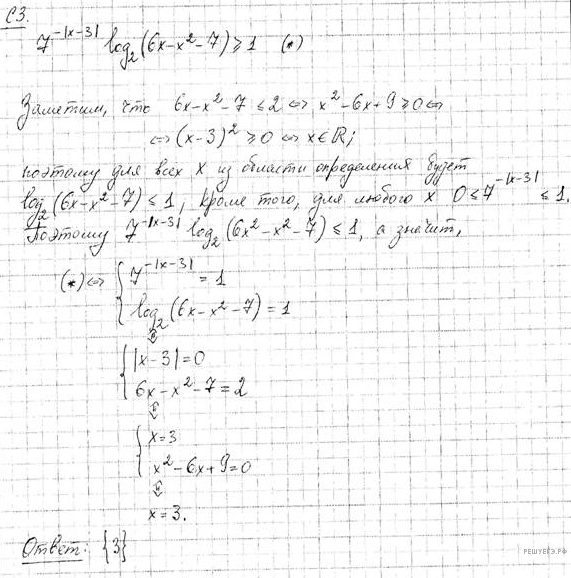 С3.
7^{-|x-3|} log₂(6x-x²-7) ≥ 1 (*)
Заметим, что 6x-x²-7 ≤ 2 ⇔ x²-6x+9 ≥ 0 ⇔
⇔ (x-3)² ≥ 0 ⇔ x ∈ ℝ;
поэтому для всех x из области определения будет
log₂(6x-x²-7) ≤ 1, кроме того, для любого x 0 ≤ 7^{-|x-3|} ≤ 1.
Поэтому 7^{-|x-3|} log₂(6x²-x²-7) ≤ 1, а значит,
(*) ⇔ { 7^{-|x-3|} = 1
log₂(6x-x²-7) = 1
⇕
{ |x-3| = 0
6x-x²-7 = 2
⇕
{ x = 3
x²-6x+9 = 0
⇕
x = 3.
Ответ: {3}
РЕШУЕГЭ.РФ